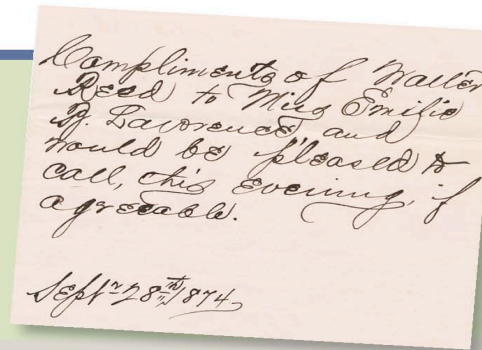 Compliments of Walter
Reed to Miss Emilie
B. Lawrence and
would be pleased to
call, this evening, if
agreeable.
Sept. 28th, 1874